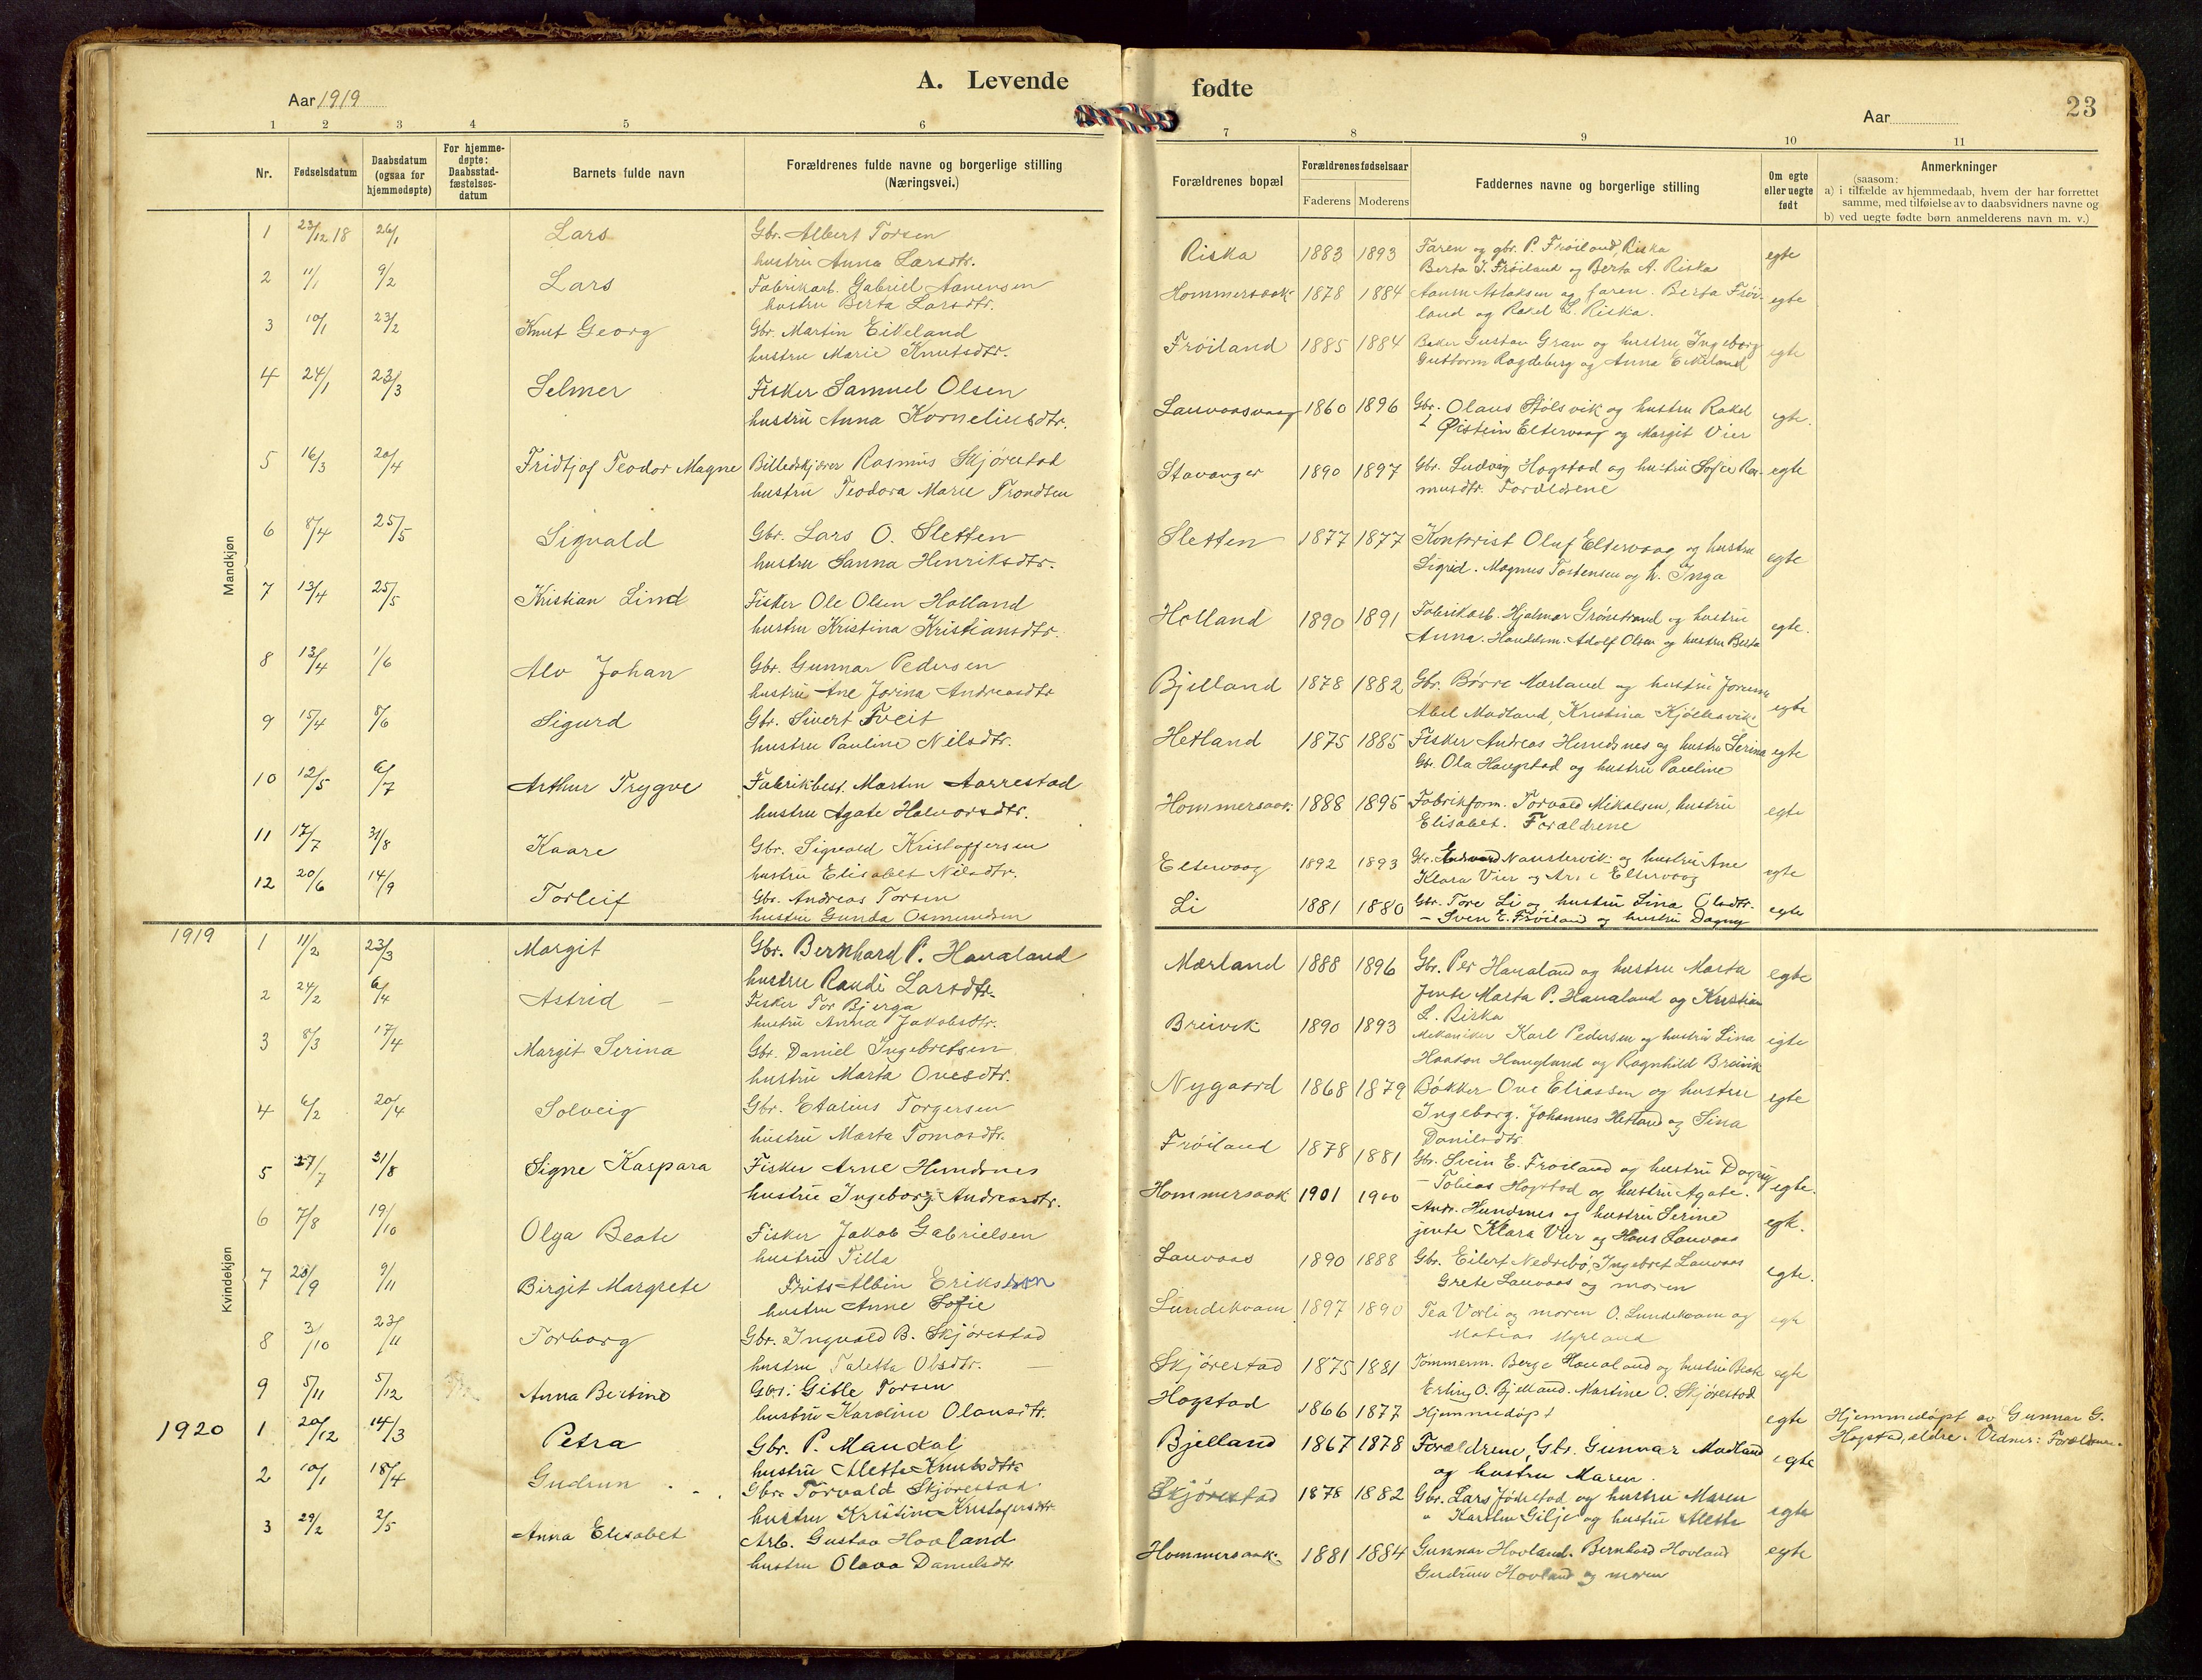 A. Levende
fødte
23
Aar 1919
Aar
1 2 3 4 5 6
7 8 9 10 11
Nr.
Fødselsdatum
Daabsdatum
(ogsaa for
hjemmedøpte)
For hjemme-
døpte:
Daabsstad-
fæstelses-
datum
Barnets fulde navn
Forældrenes fulde navne og borgerlige stilling
(Næringsvei.)
Forældrenes bopæl
Forældrenes fødselsaar
Faderens Moderens
Faddernes navne og borgerlige stilling
Om egte
eller uegte
født
Anmerkninger
(saasom:
a) i tilfælde av hjemmedaab, hvem der har forrettet
samme, med tilføielse av to daabsvidners navne og
b) ved uegte fødte børn anmelderens navn m. v.)
Mandkjøn
1 23/12 18 26/1 Lars Gbr. Albert Torsen
hustru Anna Larsdtr.
Riska 1883 1893 Faren og gbr. P. Frøiland, Riska egte
Berta J. Frøiland og Berta A. Riska
2 11/1 9/2 Lars Fabrikarb. Gabriel Aanensen
hustru Berta Larsdtr.
Hommersaak 1878 1884 Aanen Aslaksen og faren. Berta Frøi- egte
land og Rakel L. Riska.
3 10/1 23/2 Knut Georg Gbr. Martin Eikeland
hustru Marie Knutsdtr.
Frøiland 1885 1884 Baker Gustav Gran og hustru Ingeborg egte
Guttorm Ragdeberg og Anna Eikeland
4 24/1 23/3 Selmer Fisker Samuel Olsen
hustru Anna Korneliusdtr.
Lauvaasvaag 1860 1896 Gbr. Olaus Stølsvik og hustru Rakel egte.
Øistein Eltervaag og Margit Vier
5 16/3 20/4 Fridtjof Teodor Magne Billedskjærer Rasmus Skjørestad
hustru Teodora Marie Trondsen
Stavanger 1890 1897 Gbr. Ludvig Hogstad og hustru Sofie Ras- egte
musdtr. Forældrene
6 8/4 25/5 Sigvald Gbr. Lars O. Sletten
hustru Sanna Henriksdtr.
Sletten 1877 1877 Kontorist Oluf Eltervaag og hustru egte
Sigrid. Magnus Tostensen og h. Inga
7 13/4 25/5 Kristian Lind Fisker Ole Olsen Holland
hustru Kristina Kristiansdtr.
Holland 1890 1891 Fabrikarb. Hjalmar Grønstrand og hustru egte.
Anna. Handelsm. Adolf Olsen og hustru Berta
8 13/4 1/6 Alv Johan Gbr. Gunnar Pedersen
hustru Ane Jorina Andreasdtr
Bjelland 1878 1882 Gbr. Børre Mærland og hustru Jorunn egte
Abel Madland, Kristina Kjølevik
9 15/4 8/6 Sigurd Gbr. Sivert Tveit
hustru Pauline Nilsdtr.
Hetland 1875 1885 Fisker Andreas Hundsnes og hustru Serina egte
Gbr. Ola Haugstad og hustru Pauline
10 12/5 6/7 Arthur Trygve Fabrikbest. Martin Aarrestad
hustru Agate Halvorsdtr.
Hommersaak 1888 1895 Fabrikform. Torvald Mikalsen, hustru egte
Elisabet. Forældrene
11 17/7 31/8 Kaare Gbr. Sigvald Kristoffersen
hustru Elisabet Nilsdtr.
Eltervaag 1892 1893 Gbr. Endvard Naustervik og hustru Ane egte
Klara Vier og Arne Eltervaag
12 20/6 14/9 Torleif Gbr. Andreas Torsen
hustru Gunda Osmundsen
Li 1881 1880 Gbr. Tore Li og hustru Lina Olsdtr. egte
– Sven E. Frøiland og hustru Dagny
1919
Kvindekjøn
1 11/2 23/3 Margit Gbr. Bernhard P. Haualand
hustru Randi Larsdtr.
Mærland 1888 1896 Gbr. Per Haualand og hustru Marta egte
Jente Marta P. Haualand og Kristian
L. Riska
2 24/2 6/4 Astrid – Fisker Tor Bjerga
hustru Anna Jakobsdtr.
Breivik 1890 1893 Mekaniker Karl Pedersen og hustru Lina egte
Haakon Haugland og Ragnhild Breivik
3 8/3 17/4 Margit Serina Gbr. Daniel Ingebretsen
hustru Marta Ovesdtr.
Nygaard 1868 1879 Bøkker Ove Eliassen og hustru egte
Ingeborg. Johannes Hetland og Sina
Danielsdtr.
4 6/2 20/4 Solveig Gbr. Etalius Torgersen
hustru Marta Tomasdtr.
Frøiland 1878 1881 Gbr. Svein E. Frøiland og hustru Dagny egte.
– Tobias Hogstad og hustru Agate.
5 27/7 31/8 Signe Kaspara Fisker Arne Hundsnes
hustru Ingeborg Andreasdtr.
Hommersaak 1901 1900 Andr. Hundsnes og hustru Serine egte.
jente Klara Vier og Hans Lauvaas
6 7/8 19/10 Olga Beate Fisker Jakob Gabrielsen
hustru Tilla
Lauvaas 1890 1888 Gbr. Eilert Nedrebø, Ingebret Lauvaas egte.
Grete Lauvaas og moren
7 28/9 9/11 Birgit Margrete Frits Albin Eriksson
hustru Anne Sofie
Lundekvam 1897 1890 Tea Varli og moren O. Lundekvam og egte
Matias Myrland
8 3/10 23/11 Torborg Gbr. Ingvald B. Skjørestad
hustru Taletta Olsdtr. –
Skjørestad 1875 1881 Tømmerm. Berge Haualand og hustru Beate egte
Erling O. Bjelland. Martine O. Skjørestad
9 5/11 5/12 Anna Bertine Gbr. Gitle Torsen
hustru Karoline Olausdtr.
Hogstad 1866 1877 Hjemmedøpt egte Hjemmedøpt av Gunnar G.
Hogstad, eldre. Vidner: Forældrene.
1920
1 20/12 14/3 Petra Gbr. P. Maudal
hustru Alette Knutsdtr.
Bjelland 1867 1878 Forældrene, Gbr. Gunnar Madland egte
og hustru Maren.
2 10/1 18/4 Gudrun Gbr. Torvald Skjørestad
hustru Kristine Kristofersdtr
Skjørestad 1878 1882 Gbr. Lars Jødestad og hustru Maren egte
" Karsten Gilje og hustru Alette
3 29/2 2/5 Anna Elisabet Arb. Gustav Hovland
hustru Olava Danielsdtr
Hommersaak 1881 1884 Gunnar Hovland. Bernhard Hovland egte
Gudrun Hovland og moren